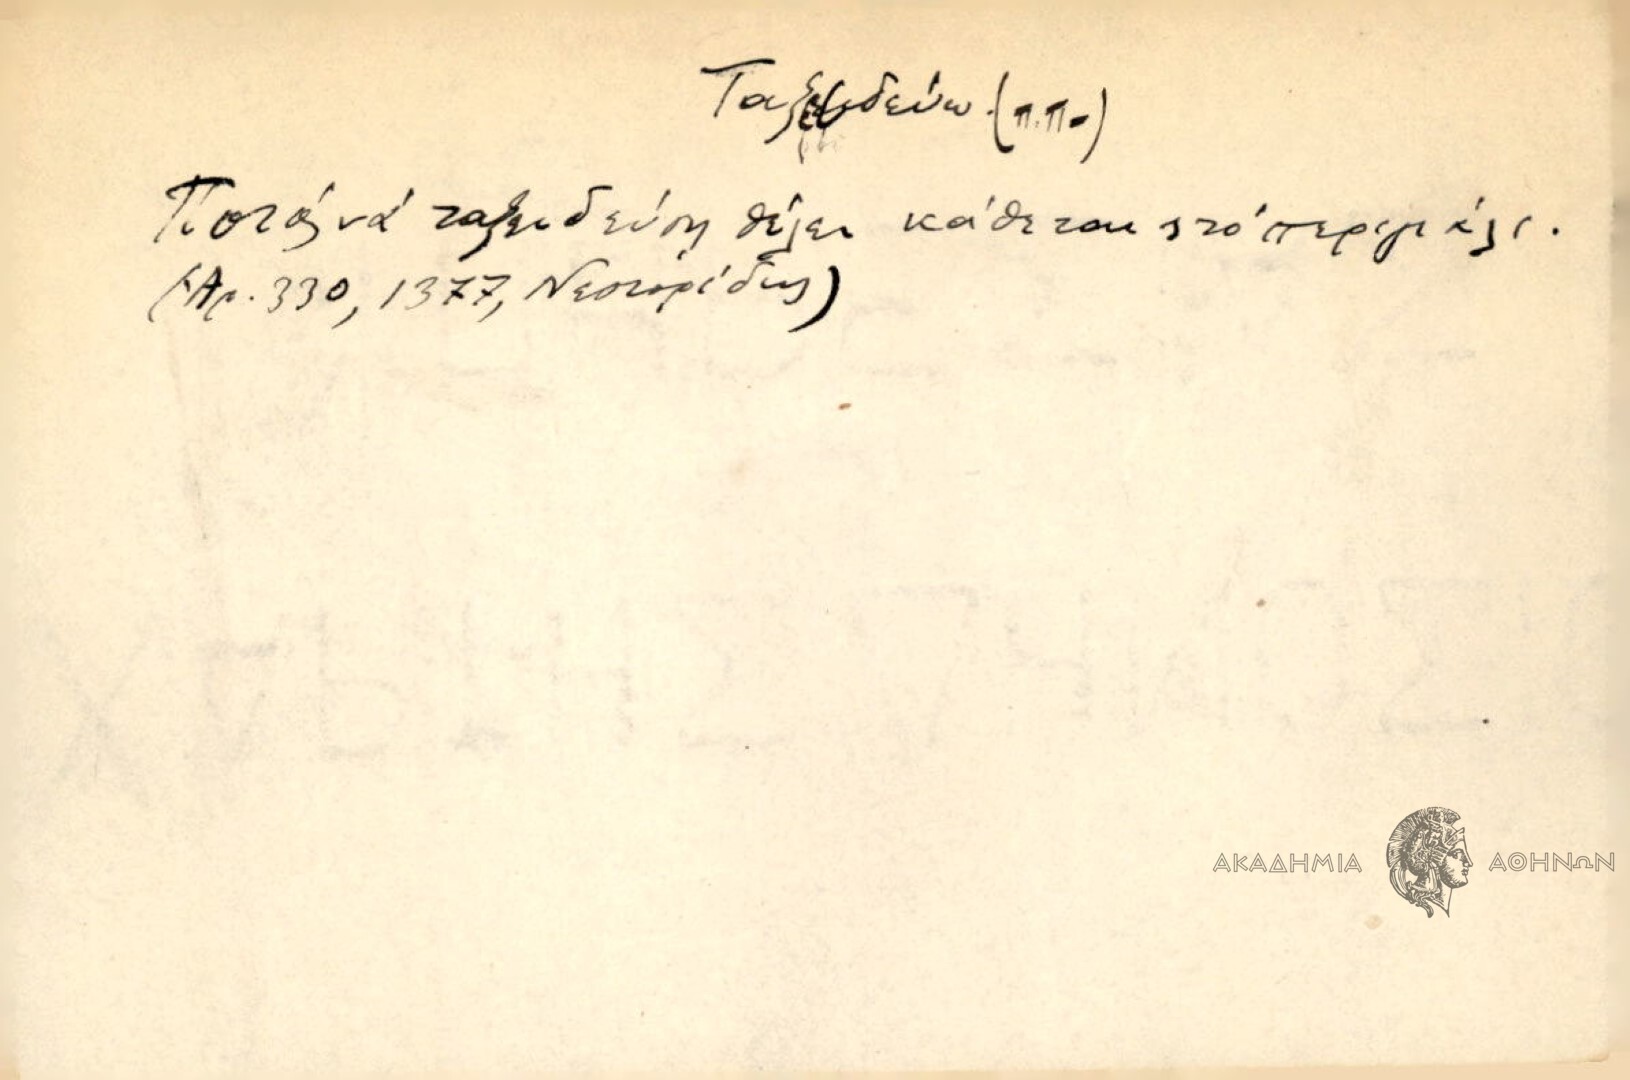 Ταξειδεύω (π.π.)
Πιστὸς νά ταξειδεύση θέλει κάθεται στό περιγιάλι.
(Ἀρ. 330, 1377, Νεστορίδης)
ΑΚΑΔΗΜΙΑ ΑΘΗΝΩΝ